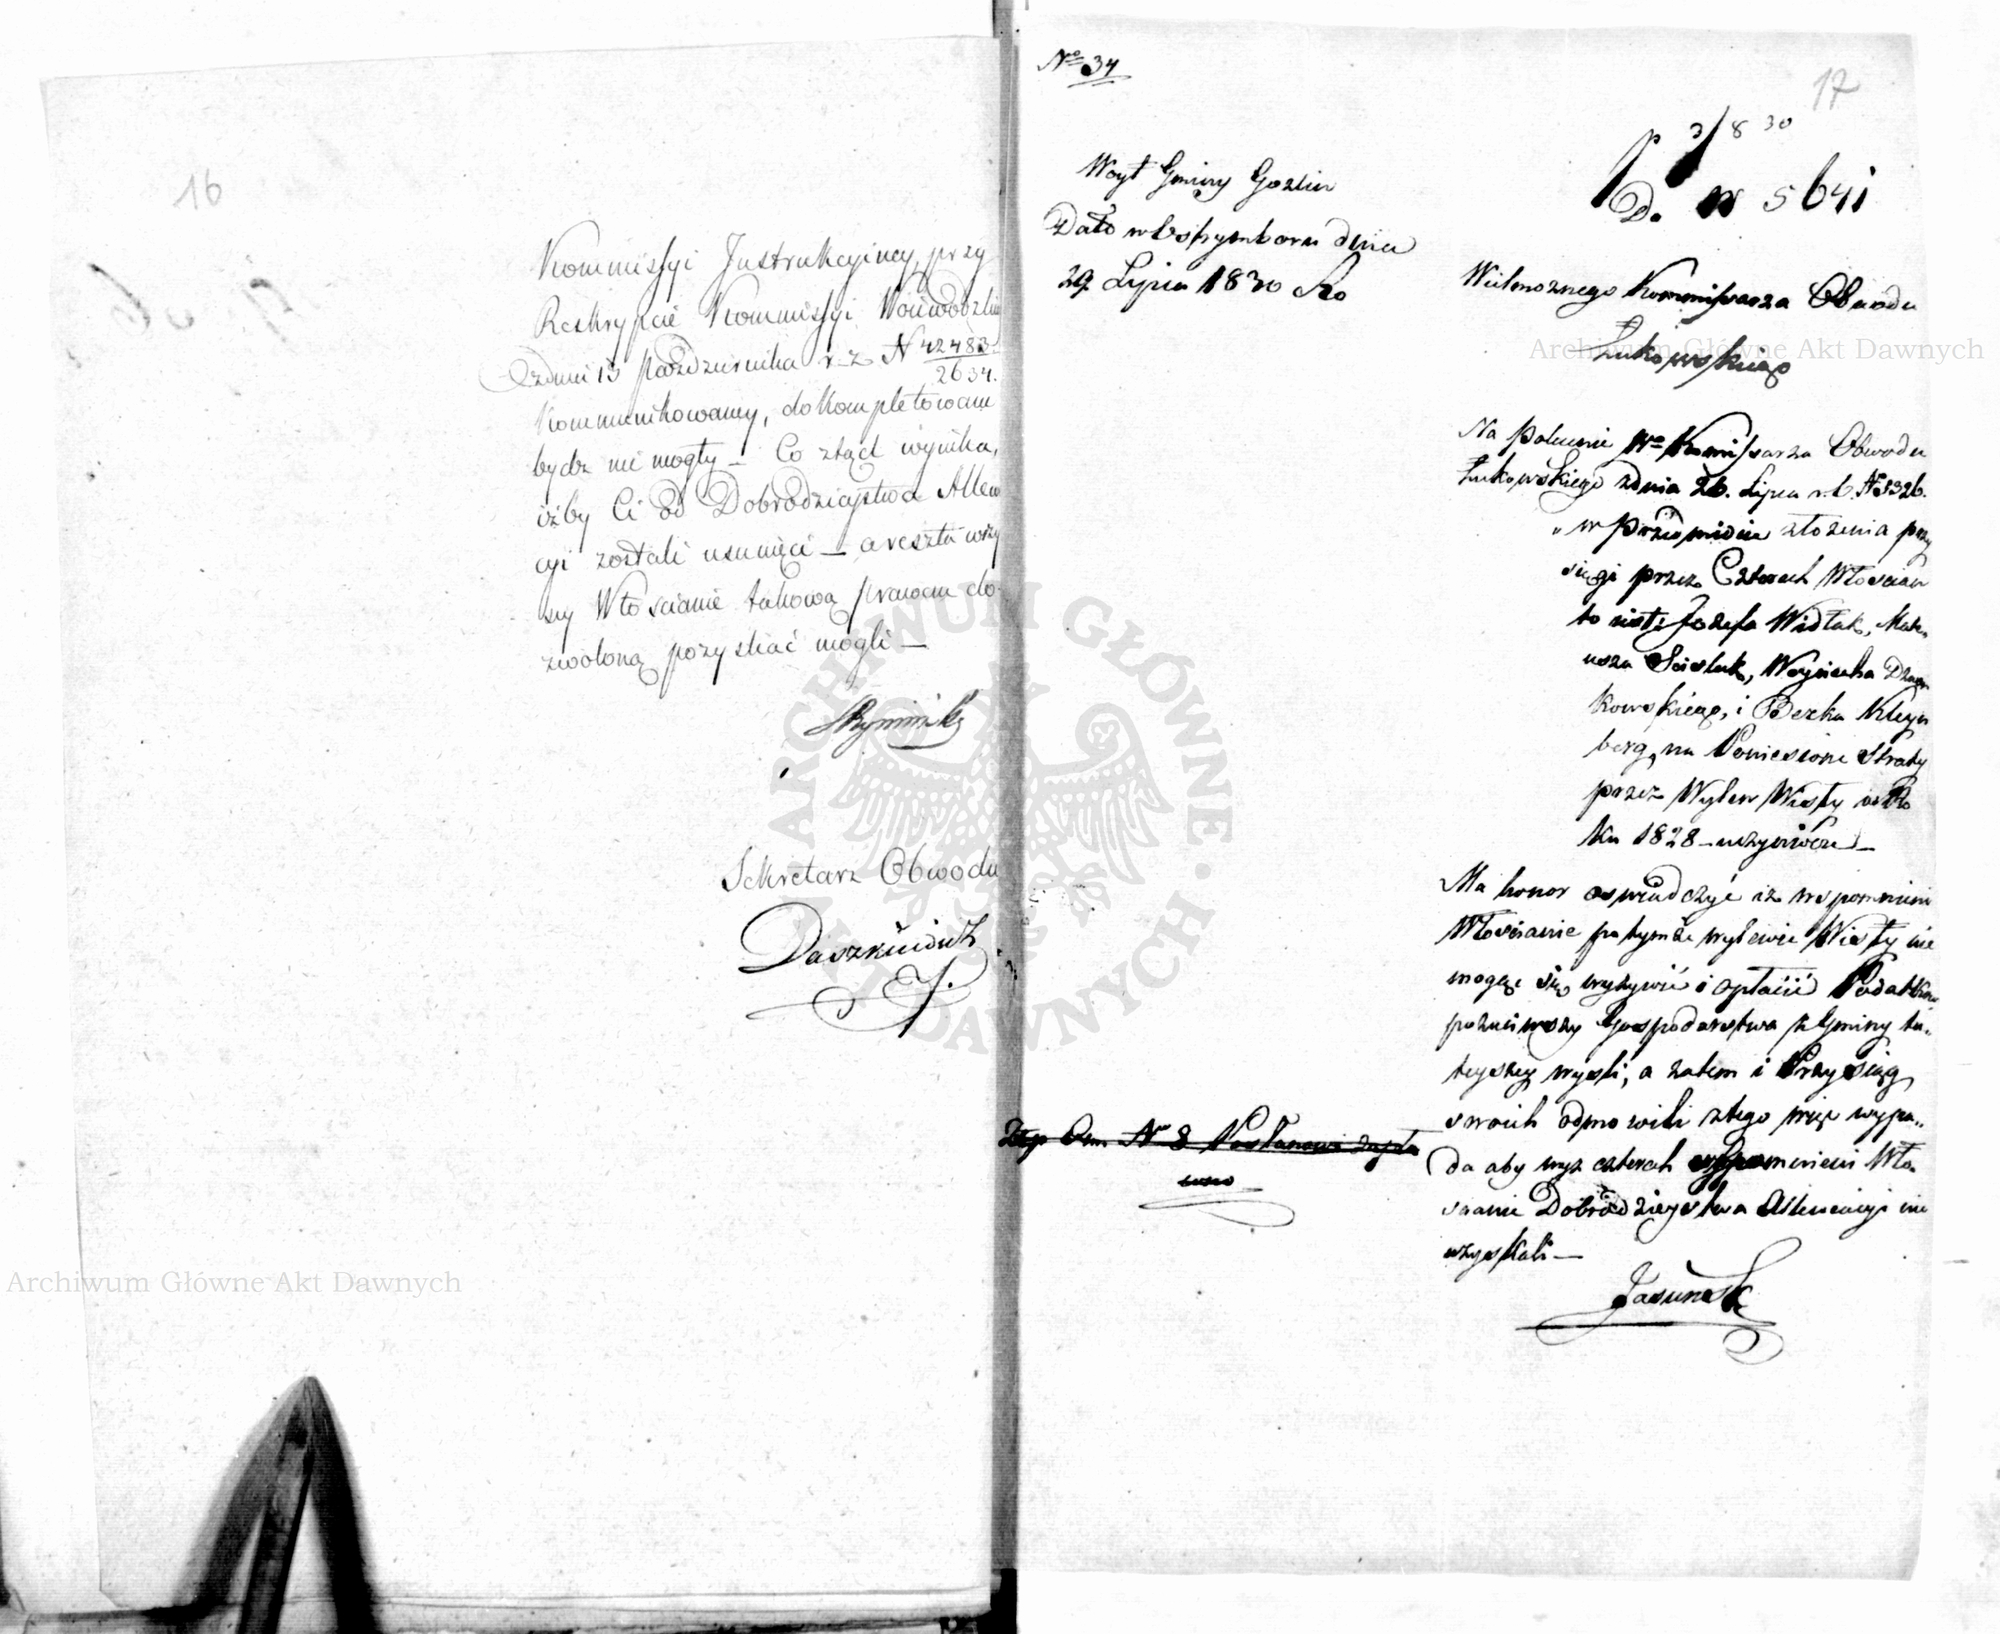 16
Kommissyi Instrukcyiney, przy
Reskrypcie Kommissyi Woiewodzkiey
z dnia 13 Pazdziernika r. z. N 42483
2634.
kommunikowaney, dokompletowane
bydz nie mogły – Co ztąd wynika,
iżby Ci od Dobrodzieystwa Allewia
cyi zostali usunięci – a reszta wszy
scy Włościanie takową prawem do-
zwoloną pozyskać mogli –
Sekretarz Obwodu
Daszkiewicz
No 34
17
3/8 30
Do N 5641
Woyt Gminy Gozlin
Dato w Ostrymboru dnia
29 Lipca 1830 Ro
Wielmoznego Kommissarza Obwodu
Łukowskiego
Na Polecenie Wo Kommissarza Obwodu
Łukowskiego z dnia 26. Lipca r. b. N
w Przedmiocie złożenia przy
sięgi przez Czterech Włoscian
to iest Jozefa Widłak, Mate-
usza Scislak, Woyciecha
kowskiego, i Berka Kleyn
berg, na Poniesione Straty
przez Wylew Wisły w Ro
ku 1828 – uczyniwszy –
Ma honor oswiadczyć iz wspomnieni
Włoscianie po tymże wylewie Wisły nie
mogąc się wyżywić i opłacić Podatków
porzuciwszy Gospodarstwa z Gminy tu-
teyszey wyszli, a zatem i Przysiąg
swoich odmowili z tego więc wypa-
da aby wyz czterech wspomnieni Wło
scianie Dobrodzieystwa Allewiacyi nie
uzyskali –
Jasinski
Archiwum Główne Akt Dawnych
Archiwum Główne Akt Dawnych
ARCHIWUM GŁÓWNE AKT DAWNYCH